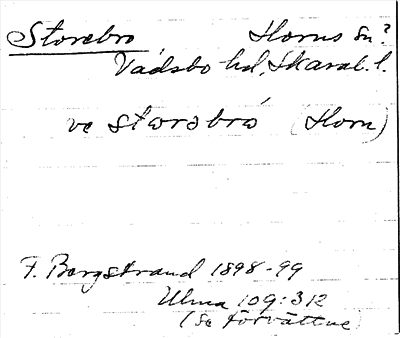 Storebro Horns sn?
Vadsbo hd, Skarab. l.
va stωrəbró (Horn)
F. Bergstrand 1898-99
Ulma 109:312
(se Förvättne)